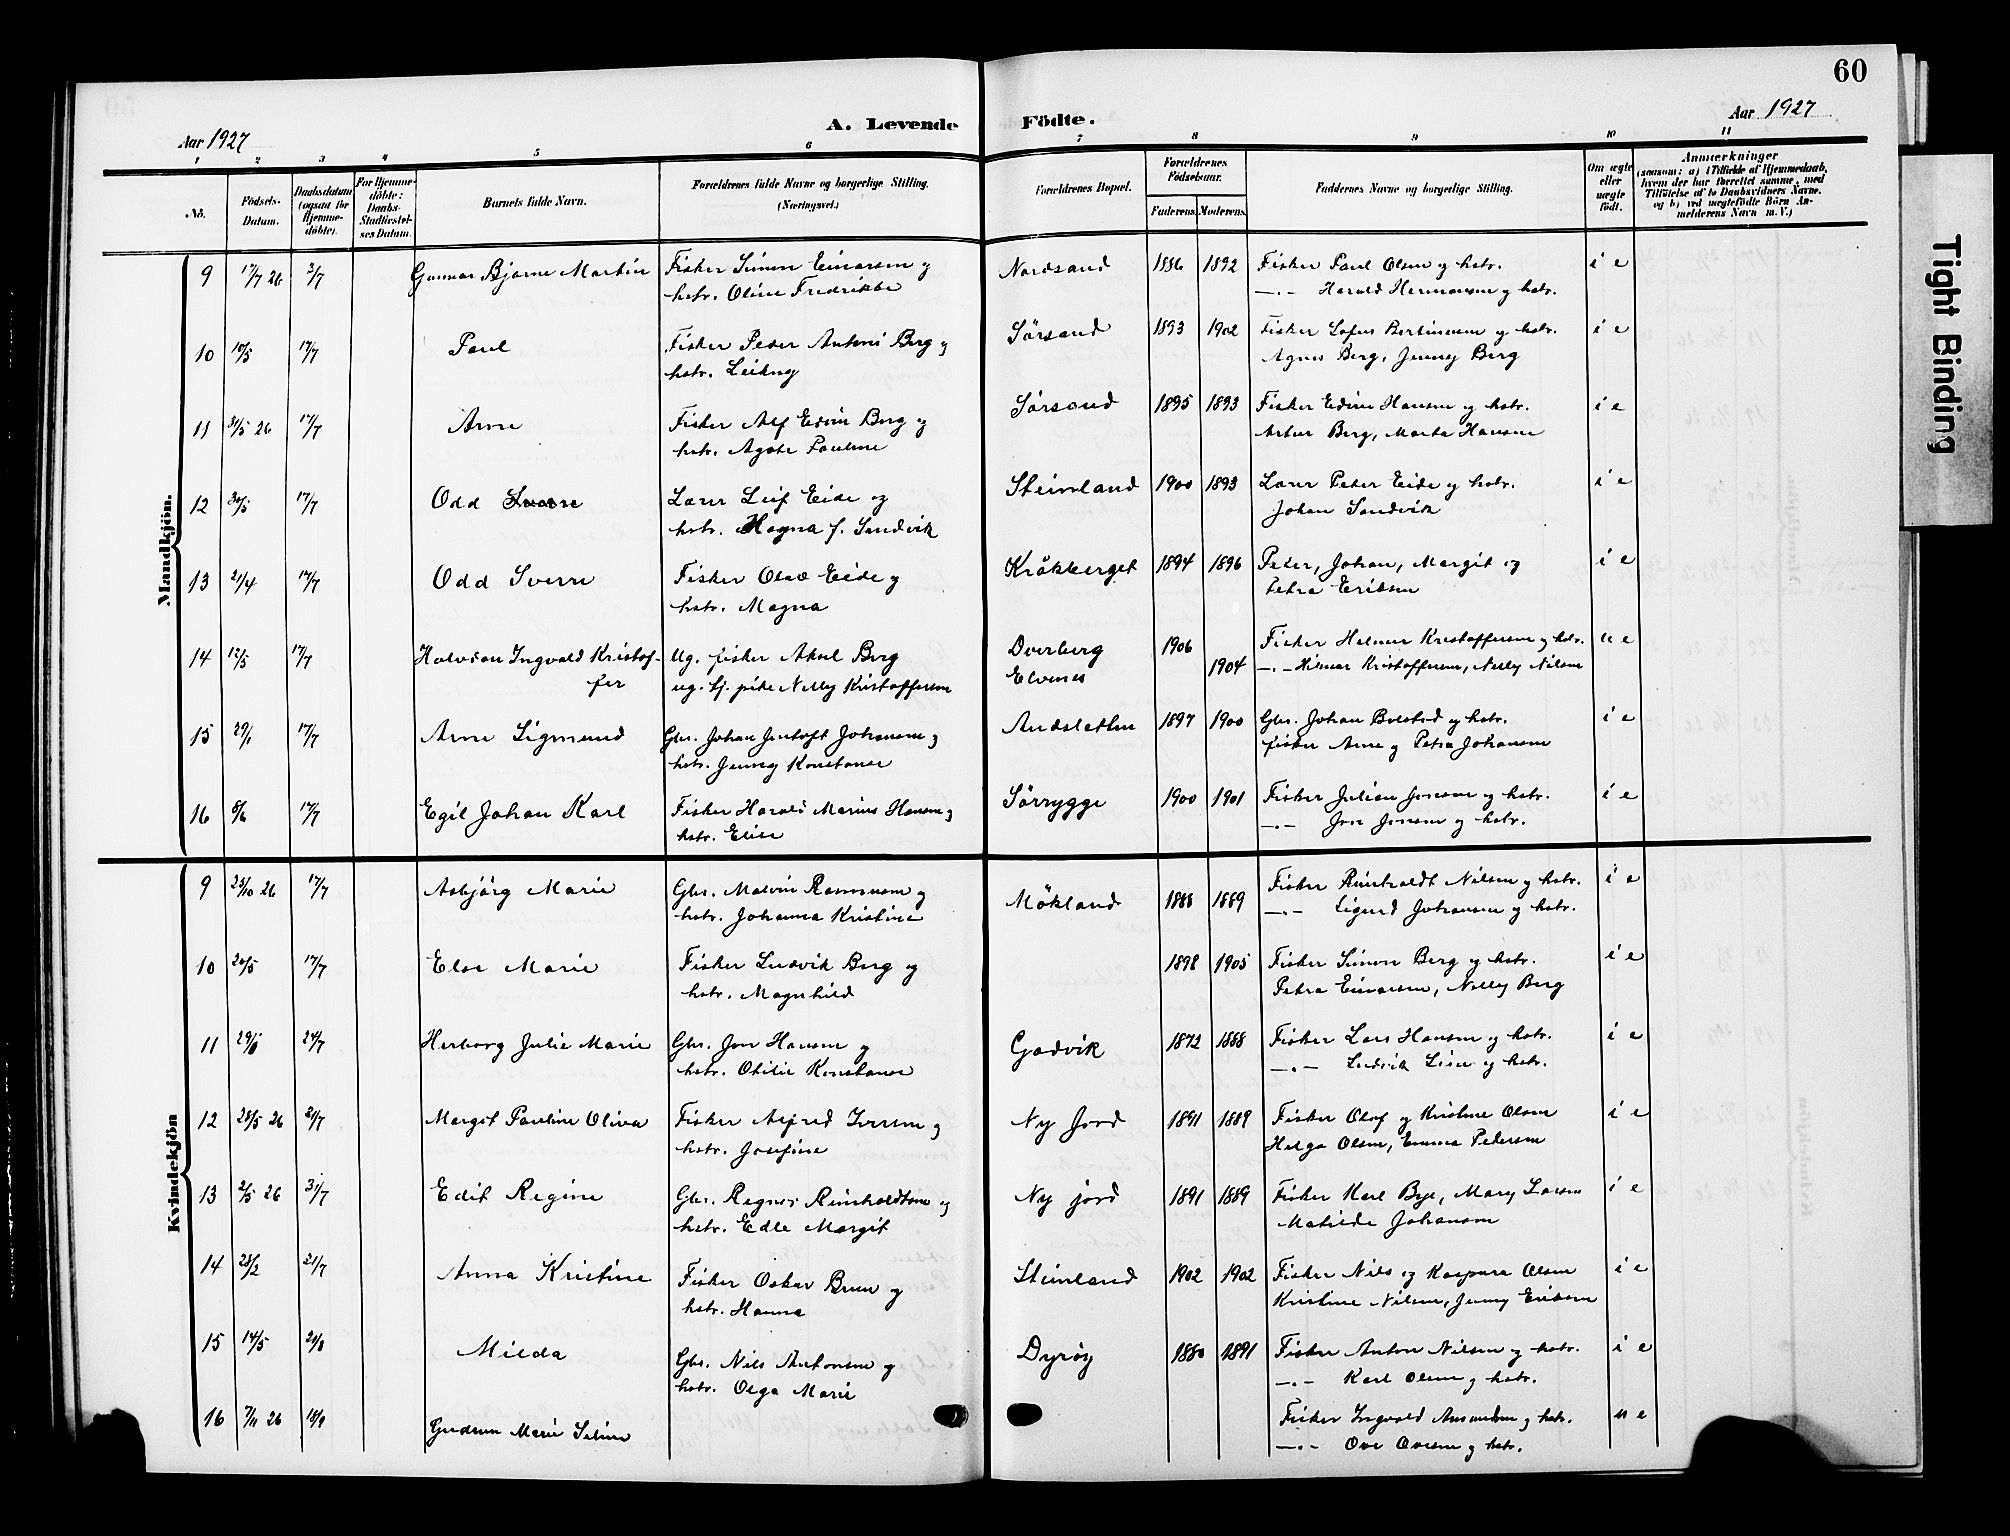 60
A. Levende Födte.
Aar 1927
Aar 1927
1 2 3 4 5 6 7 8 9 10 11
No.
Födsels-Datum.
Daabsdatum (ogsaa for Hjemmedöbte).
For Hjemmedöbte: Daabs-Stadfæstelses Datum.
Barnets fulde Navn.
Forældrenes fulde Navne og borgerlige Stilling.
(Næringsvei.)
Forældrenes Bopæl.
Forældrenes Födselsaar.
Faderens. Moderens.
Faddernes Navne og borgerlige Stilling.
Om ægte eller uægte födt.
Anmærkninger
(saasom: a) i Tilfælde af Hjemmedaab, hvem der har forrettet samme, med Tilföielse af to Daabsvidners Navne. og b) ved uægtefödte Börn Anmelderens Navn m. V.)
Mandkjön.
9 17/7 26 3/7 Gunnar Bjarne Martin Fisker Simon Einarsen og Nordsand 1886 1892 Fisker Paul Olsen og hstr. i e
hstr. Oline Fredrikke —.— Harald Hermansen og hstr.
10 10/5 17/7 Paul Fisker Peder Antoni Berg og Sörsand 1893 1902 Fisker Lofus Bertinussen og hstr. i e
hstr. Leikny Agnes Berg, Jenny Berg
11 31/5 26 17/7 Arne Fisker Alf Edvin Berg og Sörsand 1895 1893 Fisker Edvin Hansen og hstr. i e
hstr. Agate Pauline Artur Berg, Marta Hansen
12 30/5 17/7 Odd Lærer Leif Eide og Steinland 1900 1893 Lærer Peter Eide og hstr. i e
hstr. Magna f. Sandvik Johan Sandvik
13 21/4 17/7 Odd Sverre Fisker Olav Eide og Kråkberget 1894 1896 Peter, Johan, Margit og i e
hstr. Magna Petra Eriksen
14 12/5 17/7 Halvdan Ingvald Kristof- Ug. fisker Aksel Berg Dverberg 1906 Fisker Helmer Kristoffersen og hstr. u e
fer ug. tj. pike Nelly Kristoffersen Elvenes 1904 —.— Hilmar Kristoffersen, Nelly Nilsen
15 29/1 17/7 Arne Sigmund Gbr. Johan Jentoft Johansen og Andsletten 1897 1900 Gbr. Johan Bolstad og hstr. i e
hstr. Jenny Konstanse fisker Arne og Petra Johansen
16 8/6 17/7 Egil Johan Karl Fisker Harald Marius Hansen og Sörrygge 1900 1901 Fisker Julian Jensen og hstr. i e
hstr. Elise —.— Jon Jensen og hstr.
Kvindekjön
9 25/10 26 17/7 Asbjörg Marie Gbr. Malvin Rasmussen og Mökland 1888 1889 Fisker Reinholdt Nilsen og hstr. i e
hstr. Johanna Kristine —.— Sigurd Johansen og hstr.
10 20/5 17/7 Else Marie Fisker Ludvik Berg og 1898 1905 Fisker Simon Berg og hstr. i e
hstr. Magnhild Petra Einarsen, Nelly Berg
11 24/7 Herborg Julie Marie Gbr. Jon Hansen og Gavdvik 1872 1888 Fisker Lars Hansen og hstr. i e
hstr. Otilie Konstanse —.— Ludvik Lien og hstr.
12 28/5 26 21/7 Margit Pauline Oliva Fisker Alfred Iversen og Ny Jord 1891 1889 Fisker Olaf og Kristine Olsen i e
hstr. Josefine Helga Olsen, Emma Pedersen
13 2/5 26 31/7 Edit Regine Gbr. Regnor Reinholdtsen og Ny jord 1891 1889 Fisker Karl Bye, Mary Larsen i e
hstr. Edle Margit Matilde Johansen
14 28/2 21/7 Anna Kristine Fisker Oskar Brun og Steinland 1902 1902 Fisker Nils og Kaspara Olsen i e
hstr. Hanna Kristine Nilsen, Jenny Eriksen
15 14/5 21/8 Milda Gbr. Nils Antonsen og Dyröy 1880 1891 Fisker Anton Nilsen og hstr. i e
hstr. Olga Marie —.— Karl Olsen og hstr.
16 7/11 26 18/9 Gudrun Marie Seline Fisker Ingvald Amundsen og hstr. u e
—.— Ove Ovesen og hstr.
Tight Binding